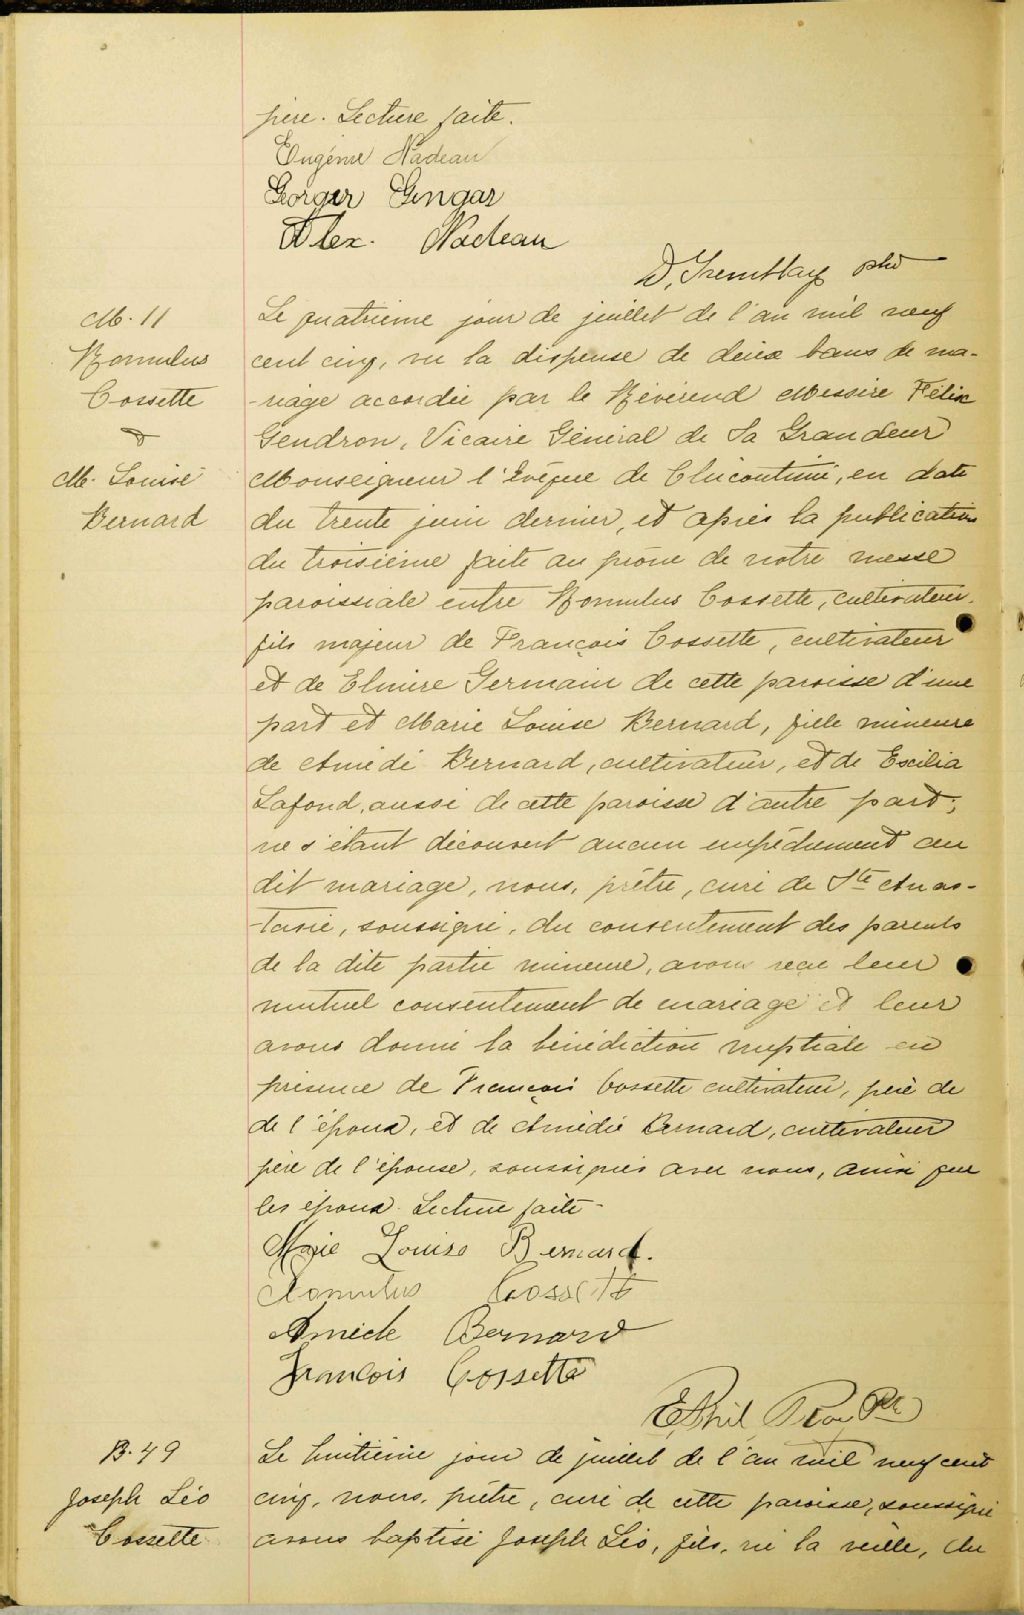 père. Lecture faite.
Eugénie Nadeau
Georger Gingar
Alex. Nadeau
D. Tremblay ptre
M. 11
Romulus
Cossette
&
M. Louise
Bernard
Le quatrième jour de juillet de l'an mil neuf
cent cinq, vu la dispense de deux bans de ma-
-riage accordée par le Révérend Messire Félix
Gendron, Vicaire Général de Sa Grandeur
Monseigneur l'Evêque de Chicoutimi, en date
du trente juin dernier, et après la publication
du troisième faite au prône de notre messe
paroissiale entre Romulus Cossette, cultivateur,
fils majeur de François Cossette, cultivateur
et de Elmire Germain de cette paroisse d'une
part et Marie Louise Bernard, fille mineure
de Amédé Bernard, cultivateur, et de Exilia
Lafond, aussi de cette paroisse d'autre part;
ne s'étant découvert aucun empêchement au
dit mariage, nous, prêtre, curé de Ste Anas-
-tasie, soussigné, du consentement des parents
de la dite partie mineure, avons reçu leur
mutuel consentement de mariage et leur
avons donné la bénédiction nuptiale en
présence de François Cossette cultivateur, père de
de l'époux, et de Amédée Bernard, cultivateur
père de l'épouse, soussignés avec nous, ainsi que
les époux. Lecture faite-
Marie Louise Bernard.
Romulus Cossette
Amede Bernard
François Cossette
Phil
B. 49
Joseph Léo
Cossette
Le huitième jour de juillet de l'an mil neuf cent
cinq, nous, prêtre, curé de cette paroisse, soussigné
avons baptisé Joseph Léo, fils, né la veille, du